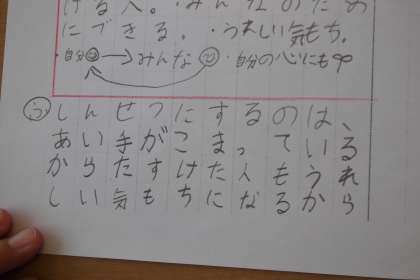 ける人。・みんなのため
にできる。・うれしい気もち。
・自分→みんな・自分の心にも
しんせつにするのは、
あい手がこまっている
からたすけた人もうれ
しい気もちになるから